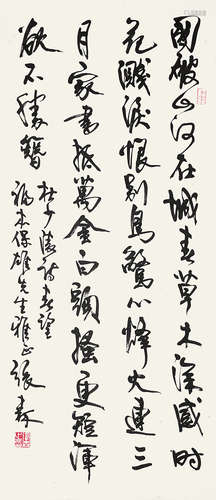 國破山河在城春草木深感時
花濺淚恨別鳥驚心烽火連三
月家書抵萬金白頭搔更短渾
欲不勝簪
杜少陵詩春望
福本保雄先生雅正 張森